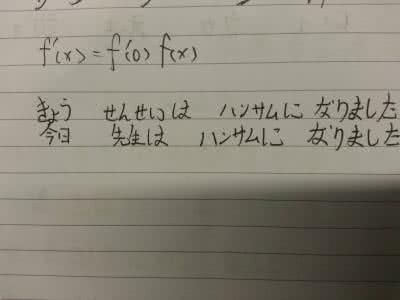 f'(x) = f'(0) f(x)
きょう せんせいは ハンサムに なりました
今日 先生は ハンサムに なりました